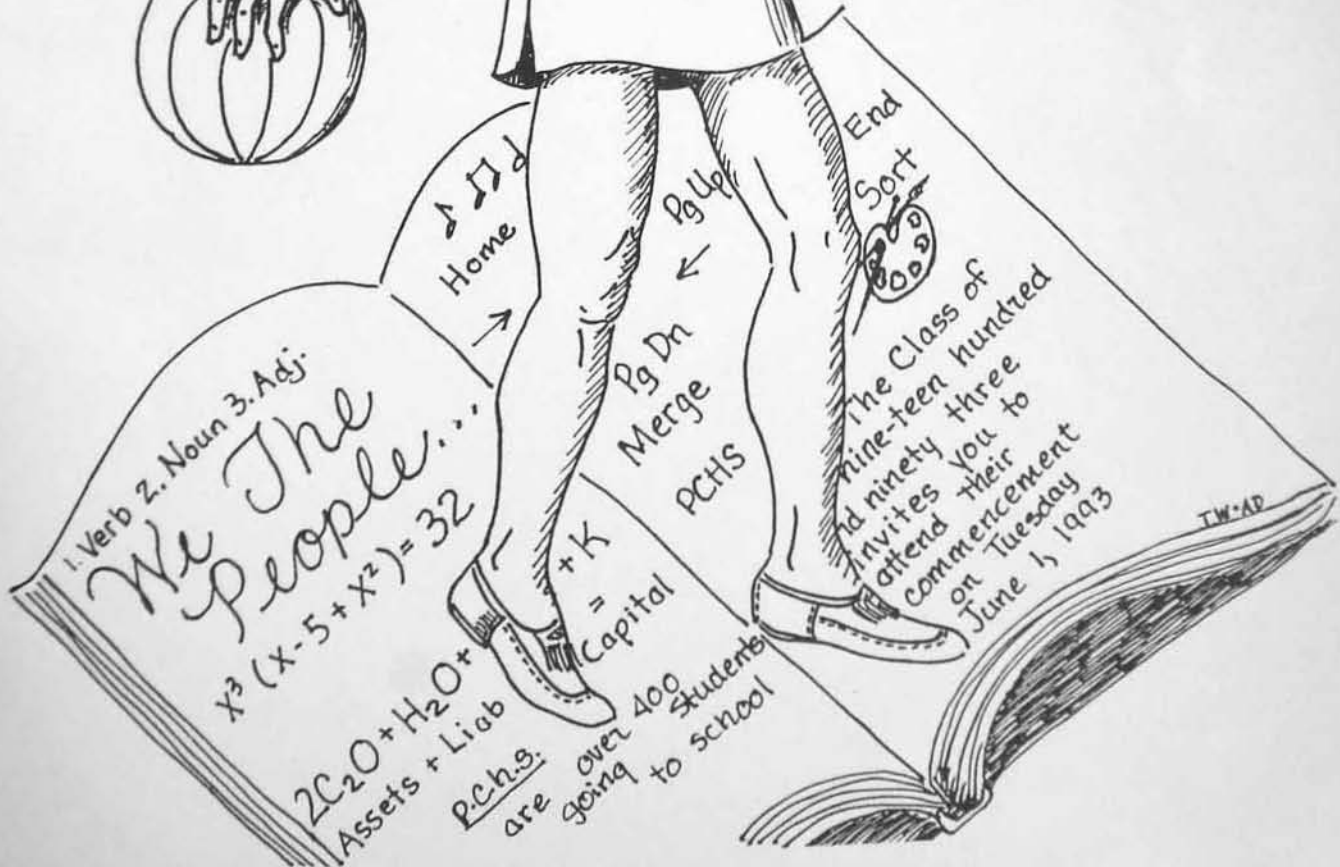 1. Verb 2. Noun 3. Adj.
We The
People...
x³ (x - 5 + x²) = 32
2C₂O + H₂O + + K
Assets + Liab = Capital
P.C.h.s.
are over 400
going Students
to school
Home
Pg Up
Pg Dn
Merge
PCHS
End
Sort
The Class of
nine-teen hundred
nd ninety three
invites you to
attend their
commencement
on Tuesday
June 1, 1993